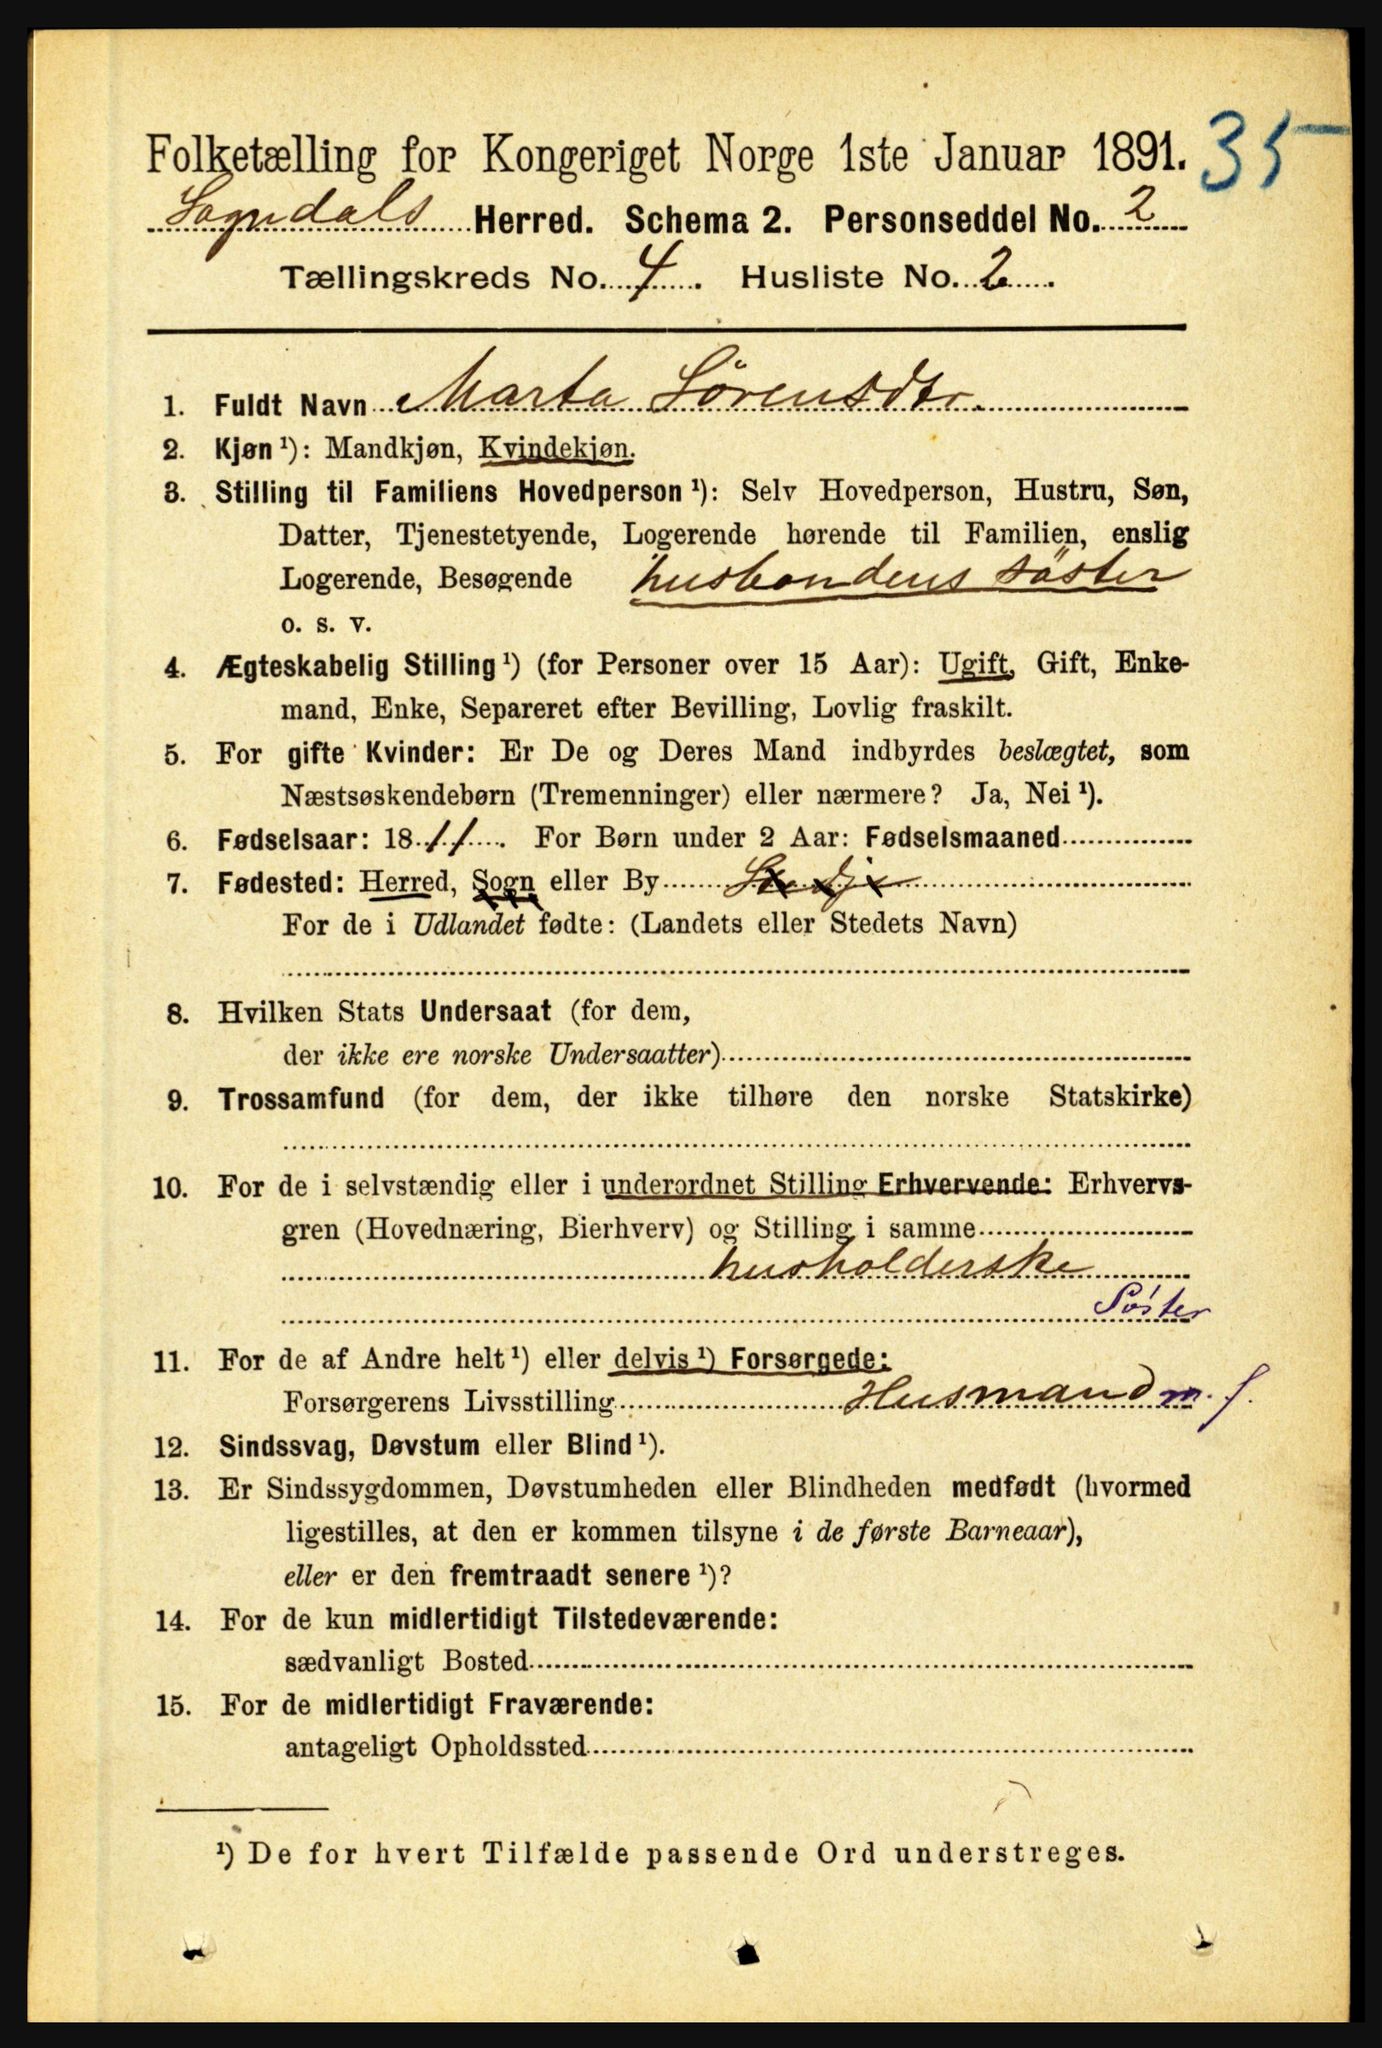 35
Folketælling for Kongeriget Norge 1ste Januar 1891.
Sogndals Herred. Schema 2. Personseddel No. 2
Tællingskreds No. 4. Husliste No. 2.
1. Fuldt Navn Marta Sørensdtr.
2. Kjøn ¹): Mandkjøn, Kvindekjøn.
3. Stilling til Familiens Hovedperson ¹): Selv Hovedperson, Hustru, Søn,
Datter, Tjenestetyende, Logerende hørende til Familien, enslig
Logerende, Besøgende husbondens söster
o. s. v.
4. Ægteskabelig Stilling ¹) (for Personer over 15 Aar): Ugift, Gift, Enke-
mand, Enke, Separeret efter Bevilling, Lovlig fraskilt.
5. For gifte Kvinder: Er De og Deres Mand indbyrdes beslægtet, som
Næstsøskendebørn (Tremenninger) eller nærmere? Ja, Nei ¹).
6. Fødselsaar: 1811. For Børn under 2 Aar: Fødselsmaaned
7. Fødested: Herred, Sogn eller By
For de i Udlandet fødte: (Landets eller Stedets Navn)
8. Hvilken Stats Undersaat (for dem,
der ikke ere norske Undersaatter)
9. Trossamfund (for dem, der ikke tilhøre den norske Statskirke)
10. For de i selvstændig eller i underordnet Stilling Erhvervende: Erhvervs-
gren (Hovednæring, Bierhverv) og Stilling i samme
husholderske
Söster
11. For de af Andre helt ¹) eller delvis ¹) Forsørgede:
Forsørgerens Livsstilling Husmand m. f.
12. Sindssvag, Døvstum eller Blind ¹).
13. Er Sindssygdommen, Døvstumheden eller Blindheden medfødt (hvormed
ligestilles, at den er kommen tilsyne i de første Barneaar),
eller er den fremtraadt senere ¹)?
14. For de kun midlertidigt Tilstedeværende:
sædvanligt Bosted
15. For de midlertidigt Fraværende:
antageligt Opholdssted
¹) De for hvert Tilfælde passende Ord understreges.